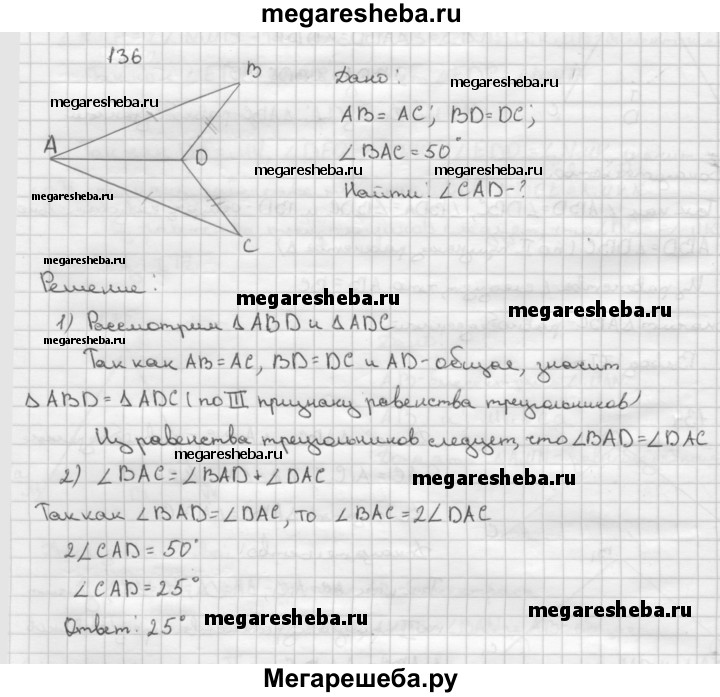 megaresheba.ru
136
B
Дано:
megaresheba.ru
megaresheba.ru
AB = AC; BD = DC;
A
D
∠BAC = 50°
megaresheba.ru
megaresheba.ru
megaresheba.ru
Найти: ∠CAD - ?
C
megaresheba.ru
Решение:
megaresheba.ru
megaresheba.ru
1) Рассмотрим △ABD и △ADC
megaresheba.ru
Так как AB = AC, BD = DC и AD - общая, значит
△ABD = △ADC (по III признаку равенства треугольников)
Из равенства треугольников следует, что ∠BAD = ∠DAC
megaresheba.ru
2) ∠BAC = ∠BAD + ∠DAC
megaresheba.ru
Так как ∠BAD = ∠DAC, то ∠BAC = 2∠DAC
2∠CAD = 50°
∠CAD = 25°
megaresheba.ru
Ответ: 25°
megaresheba.ru
Мегарешеба.ру